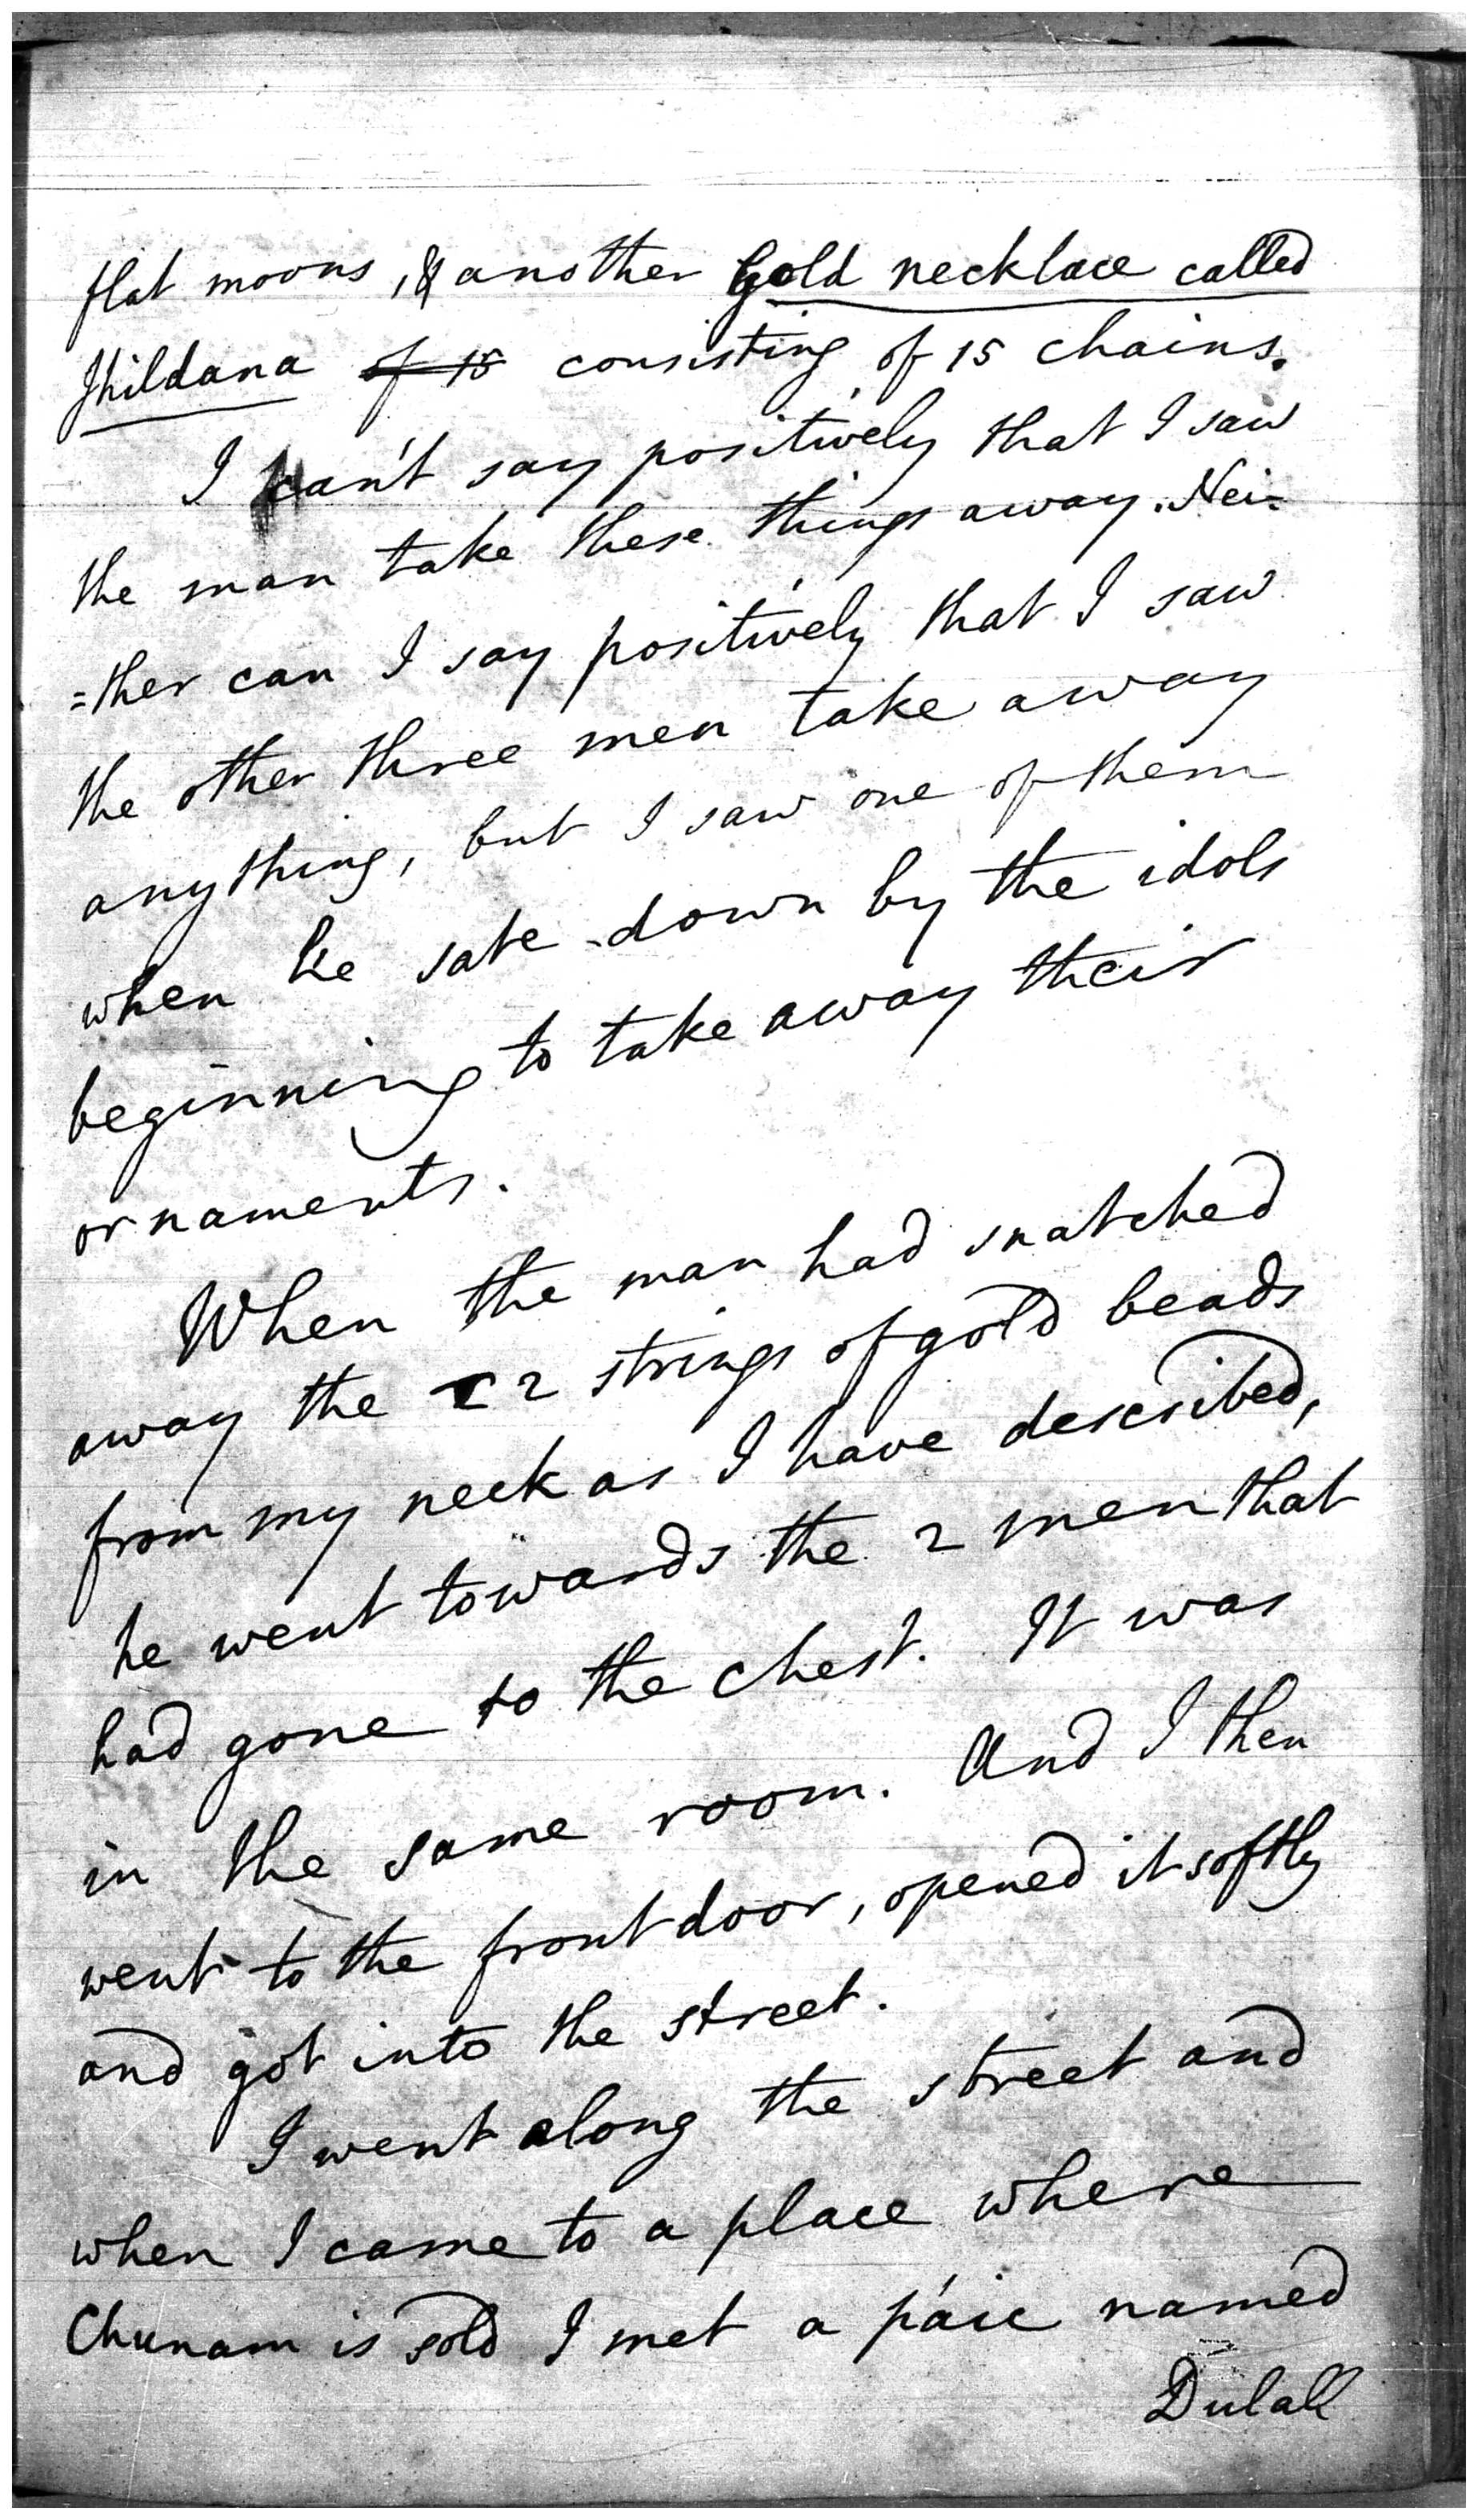 flat moons, & another Gold necklace called
Jhildana of 15 consisting of 15 chains.
I can't say positively that I saw
the man take these things away. Nei-
=ther can I say positively that I saw
the other three men take away
anything, but I saw one of them
when he sate down by the idols
beginning to take away their
ornaments.
When the man had snatched
away the 2 strings of gold beads
from my neck as I have described,
he went towards the 2 men that
had gone to the chest. It was
in the same room. And I then
went to the front door, opened it softly
and got into the street.
I went along the street and
when I came to a place where
Chunam is sold I met a páic named
Dulall